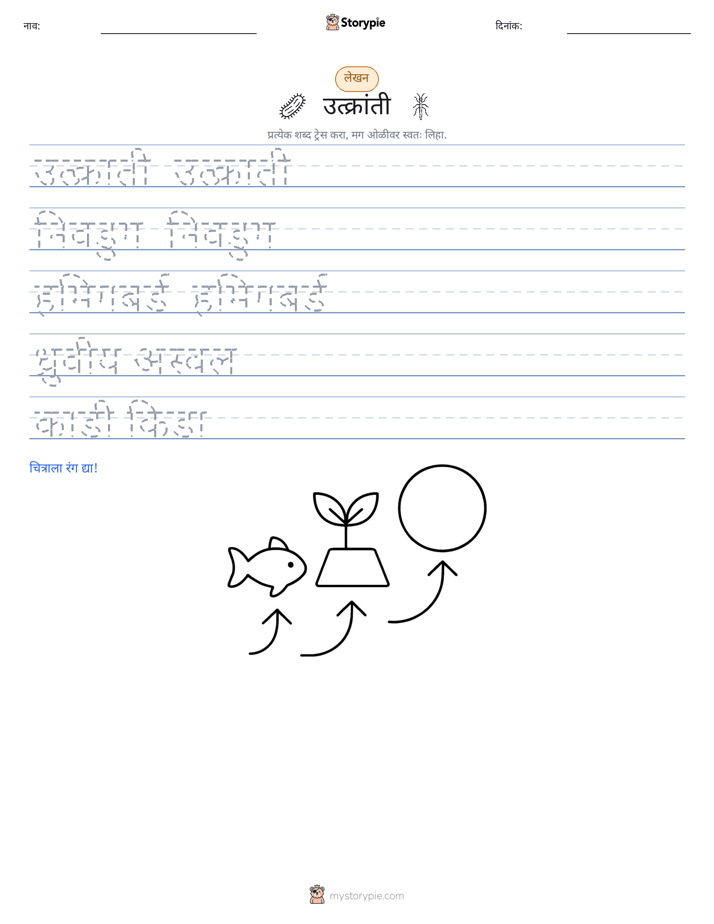 नाव:
Storypie
दिनांक:
लेखन
उत्क्रांती
प्रत्येक शब्द ट्रेस करा, मग ओळीवर स्वतः लिहा.
उत्क्रांती उत्क्रांती
निवडुंग निवडुंग
हमिंगबर्ड हमिंगबर्ड
ध्रुवीय अस्वल
काडी किडा
चित्राला रंग द्या!
mystorypie.com